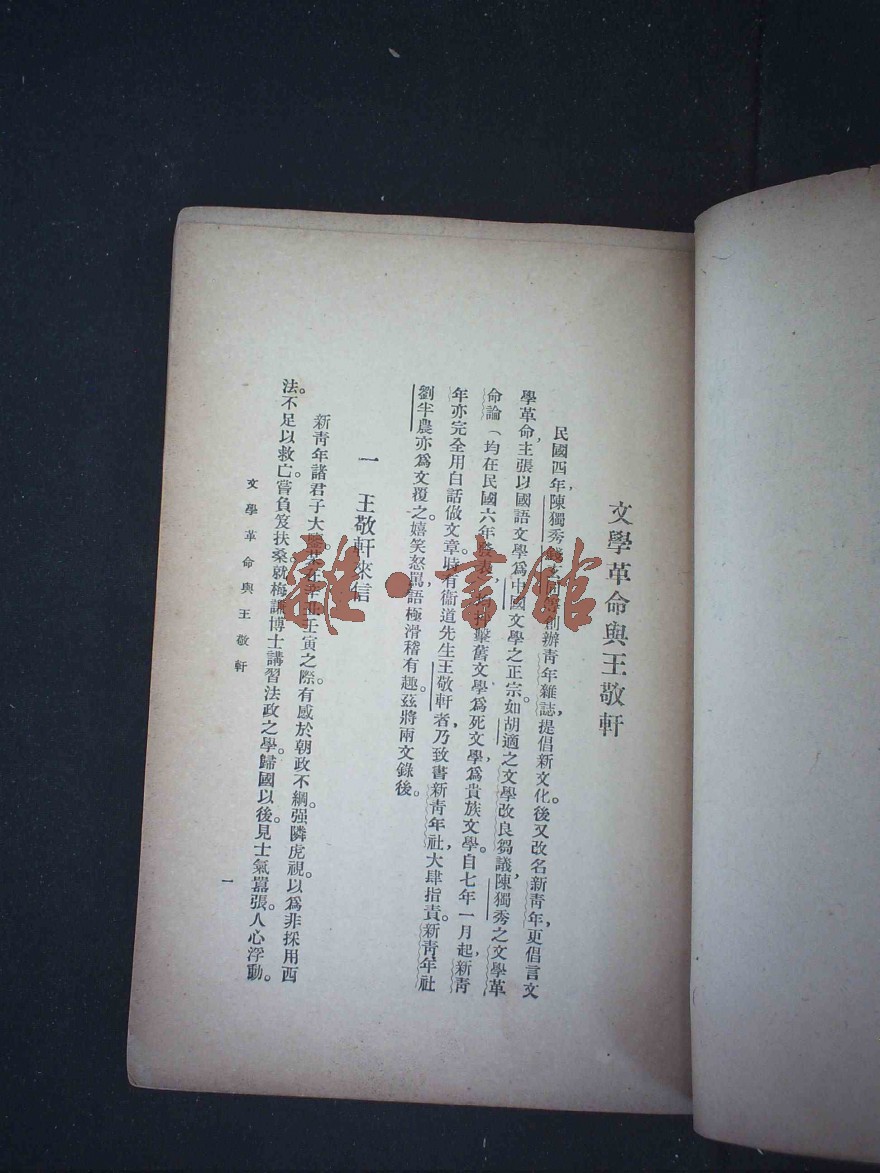 文學革命與王敬軒
民國四年，陳獨秀錢玄同等創辦青年雜誌，提倡新文化。後又改名新青年，更倡言文
學革命，主張以國語文學爲中國文學之正宗。如胡適之文學改良芻議，陳獨秀之文學革
命論（均在民國六年發表），擊舊文學爲死文學，爲貴族文學。自七年一月起，新青
年亦完全用白話做文章。時有衞道先生王敬軒者，乃致書新青年社，大肆指責。新青年社
劉半農亦爲文覆之。嬉笑怒罵，語極滑稽有趣。茲將兩文錄後。
一 王敬軒來信
新青年諸君子大壬寅之際。有感於朝政不綱。强隣虎視。以爲非採用西
法。不足以救亡。嘗負笈扶桑。就梅謙博士講習法政之學。歸國以後。見士氣囂張。人心浮動。
文學革命與王敬軒
一
雜·書館